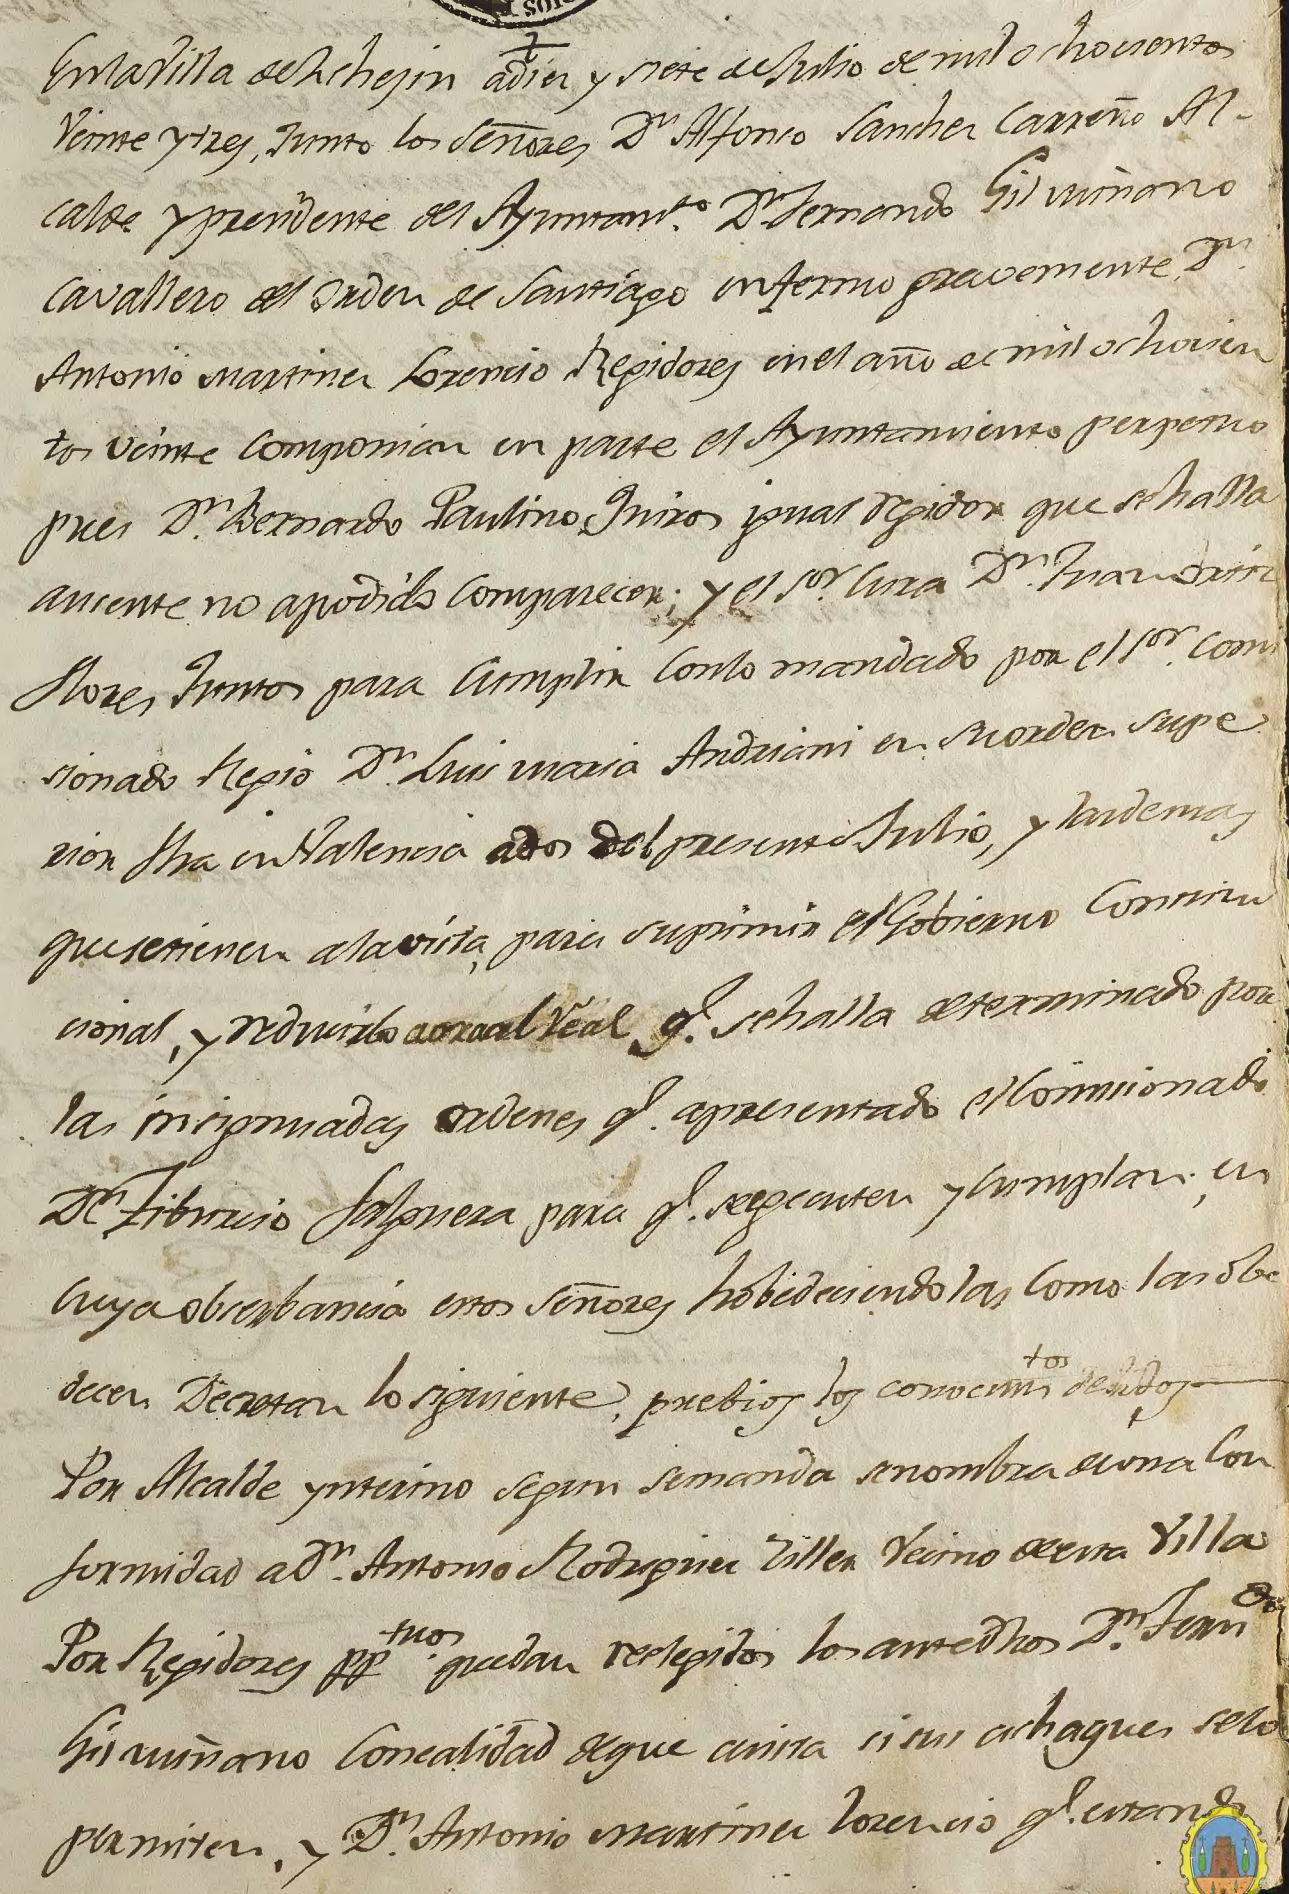 En la Villa de Lchejin adiez y siete de Julio de mil ochocientos
Veinte y tres, Junto los Señores Dn. Alfonso Sanchez Carreño Al-
calde y presidente del Ayuntamto. Dn. Fernando Gil muñano
Cavallero del orden de Santiago enfermo gravemente Dn.
Antonio Martinez Lorencio Regidores en el año de mil ochocien
tos veinte componian en parte el Ayuntamiento perpetuo
pues Dn. Bernardo Paulino Quiros igual Regidor que sehalla
ausente no apodido Comparecer; y el Sor. Cura Dn. Juan
flores Juntos para Cumplir conlo mandado por el Sor. Comi
sionado Regio Dn. Luis maria Andriani en su orden supe
rior fha en Valencia ados del presente Julio, y lasdemas
que setienen ala vista, para suprimir el Gobierno Constitu
cional, y reducirlo aora al Real, q. sehalla determinado por
las insignuadas ordenes q. apresentado el Comisionado
Dn Tiburcio para q. segecuten y Cumplan, en
Cuya obserbancia estos Señores hobedeciendolas Como las obe
decen Decretan lo siguiente, prebios los conocimtos devidos
Por Alcalde ynterino segun semanda senombra de una Con
formidad a Dn. Antonio Rodriguez Tiller Vecino de esta Villa
Por Regidores pptuos. quedan reelegidos los antedhos Dn. Ferndo
Gil muñano Concalidad deque asista si sus achaques selo
permiten, y Dn. Antonio Martinez Lorencio q. estando